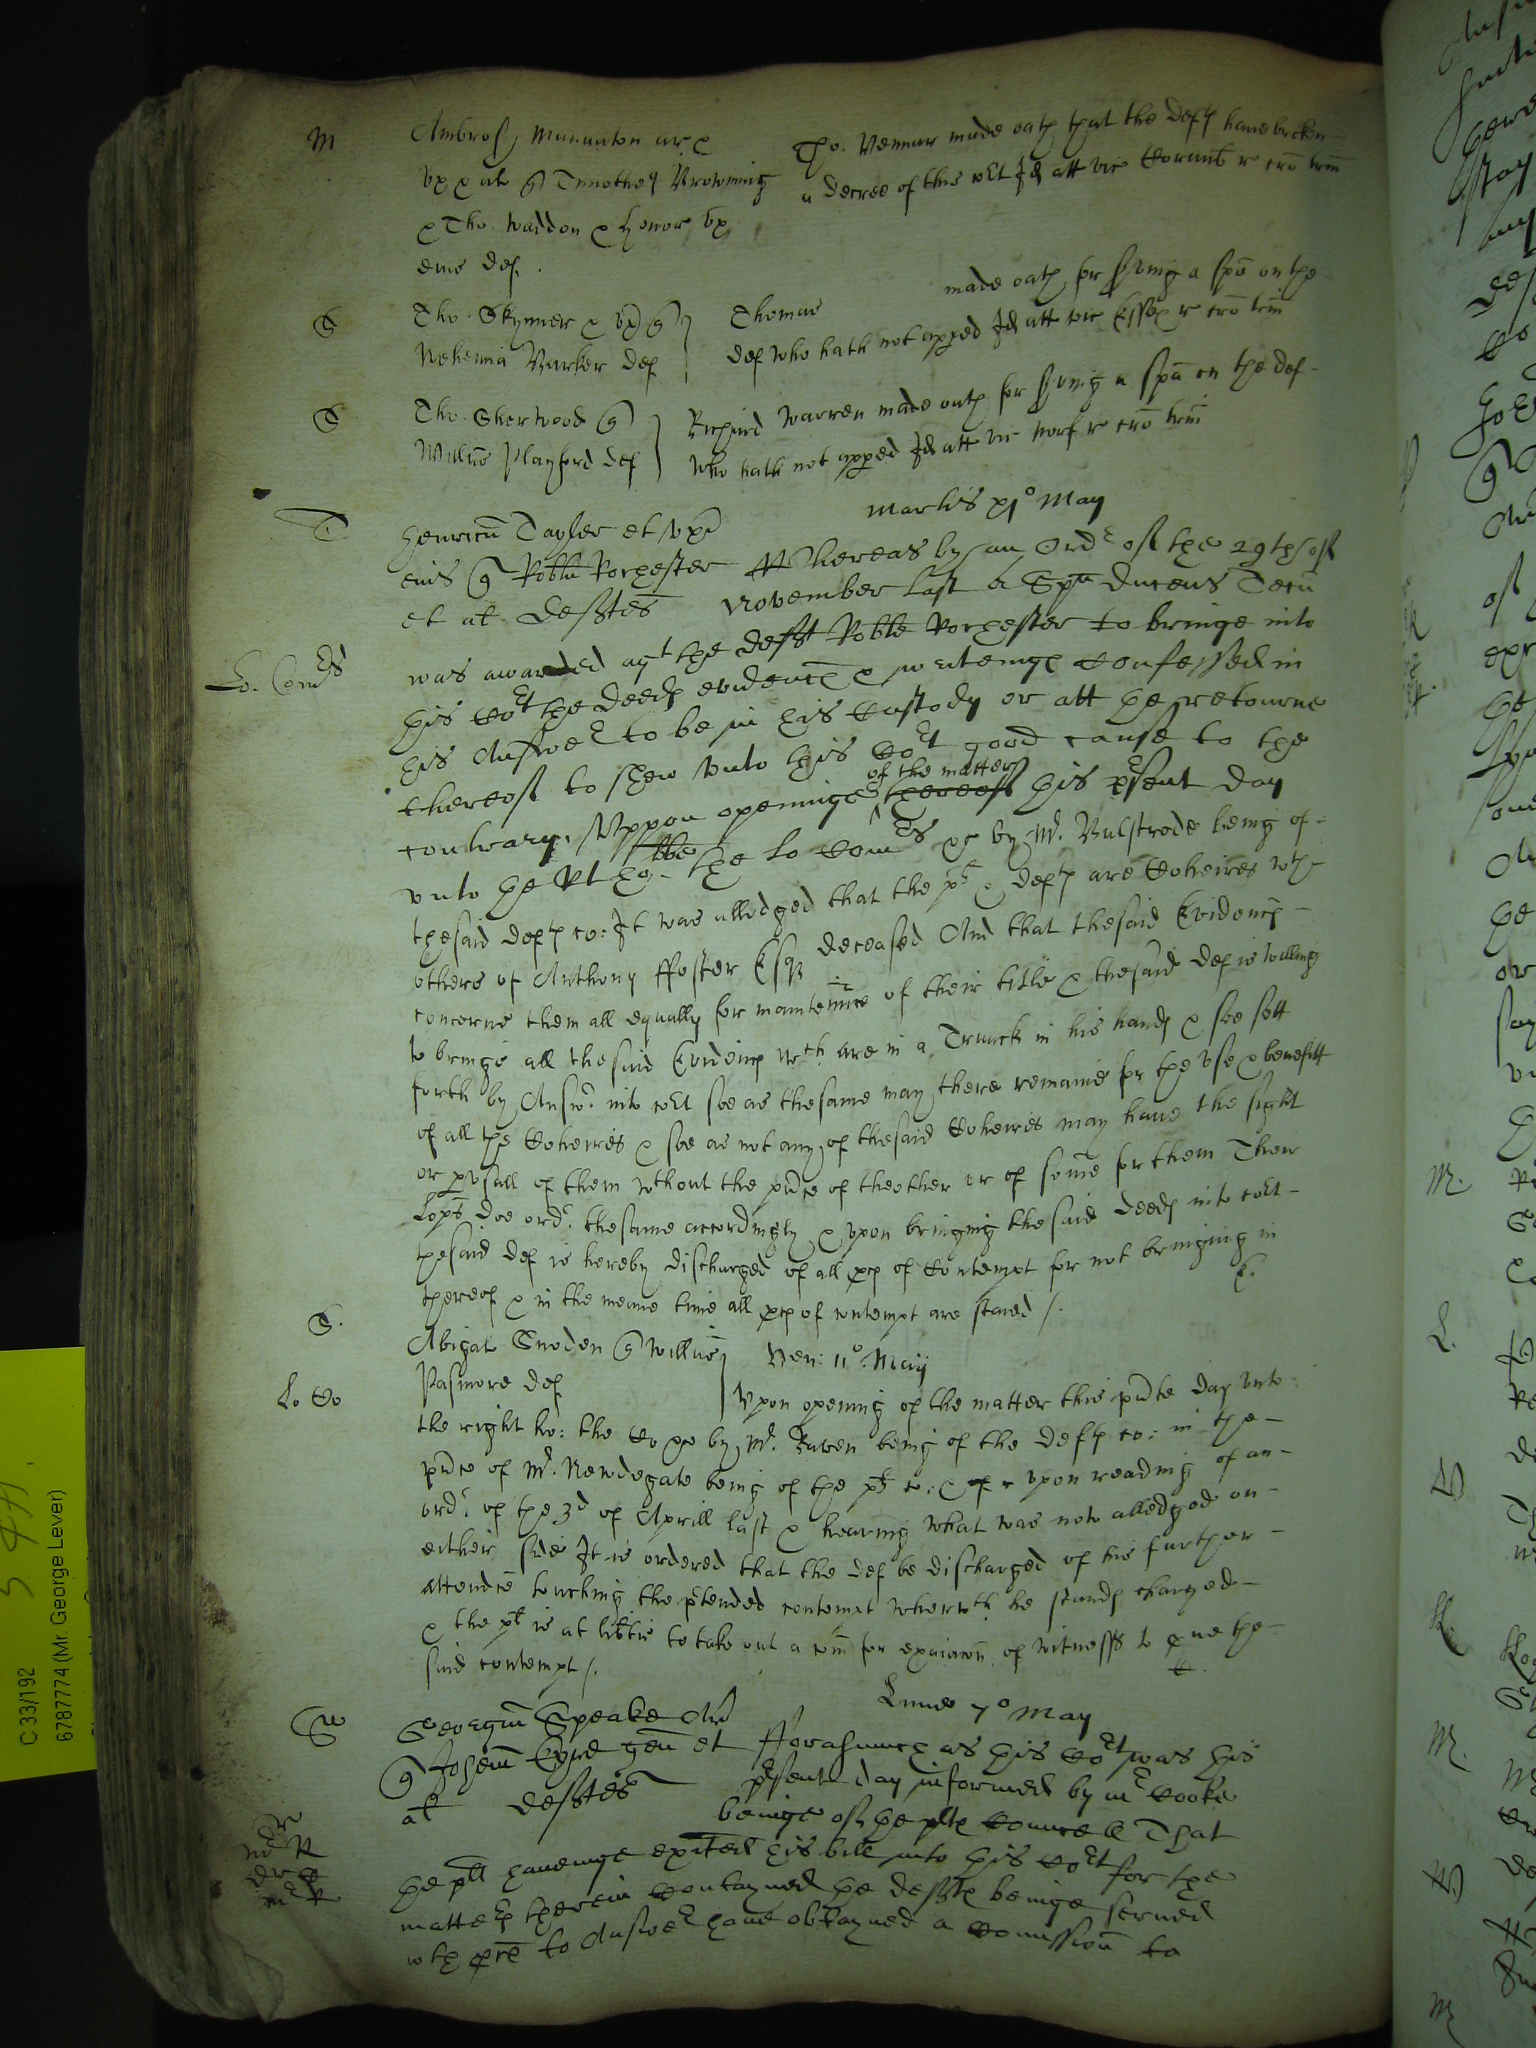 M Ambrose Manaton ar &
ux & al q Timothey Browning
& Tho. Waddon & Honor ux
eius def.
Tho. Vennar made oath that the defts have broken
a decree of this Cot Id att vic Cornub r cro trin
S Tho. Skynner & ux q
Nehemia Barker def
Thomas made oath for sving a spa on the
def who hath not apped Id att vic Essex r cro trin
S Tho. Sherwood q
Willm Playford def
Richard Warren made oath for sving a spa on the def
who hath not apped Id att vic Norf r cro trin
Martis xj° May
T Henricu Tayler et uxr
eius q Robtu Rochester Whereas by an Ordr of the 29th of
et al defftes November last a Spa Ducens Tecu
Lo. Comrs was awarded agt the defft Robte Rochester to bringe into
this Cort the deeds evidences & writeings Confessed in
his Answer to be in his Custody or att the retourne
thereof to shew unto this Cort good cause to the
of the matter
contrary, Uppon openinge thereof this psent day
unto the Rt ho: the Lo Comrs &c by Mr. Bulstrode being of
thesaid defts co: It was alledged that the pt & defts are Coheires wth
others of Anthony ffoster Esqr deceased And that thesaid Evidences
concerne them all equally for maintennce of their title & thesaid def is willing
to bringe all thesaid Evidences wch are in a Trunck in his hands & soe sett
forth by Answr. into cort soe as thesame may there remaine for the use & benefitt
of all the Coheires & soe as not any of thesaid Coheires may have the sight
or pusall of them wthout the pnce of theother or of some for them Their
Lopps doe ordr. thesame accordingly & upon bringing thesaid deeds into cort
thesaid def is hereby discharged of all pces of Contempt for not bringing in
thereof & in the meane time all pces of contempt are staied /.
S. Abigal Snoden q Willm
Pasmore def
Ven: 11°. Maij
Lo Co Upon opening of the matter this pnte day unto
the right ho: the Co &c by Mr. Raven being of the defts co: in the
pnce of Mr. Newdegate being of the pts co: & of & upon reading of an
ordr. of the 3d of Aprill last & hearing what was now alledged on
either side It is ordered that the def be discharged of his further
attendce touching the ptended contempt wherwth he stands charged
& the pt is at libtie to take out a com for exaiacon of witnesses to pve the
said contempt /.
Lune 7° May
Sp Georgiu Speake Ar
q Johem Eyre gen et fforasmuch as this Cort was this
al defftes psent day informed by mr Cooke
beinge of the plts Councell That
the plt haveinge exited his bill into this Cort for the
matters therein Contayned the deffts beinge served
wth pces to Answer have obtayned a Comission to
C 33/192
6787774 (Mr. George Lever)